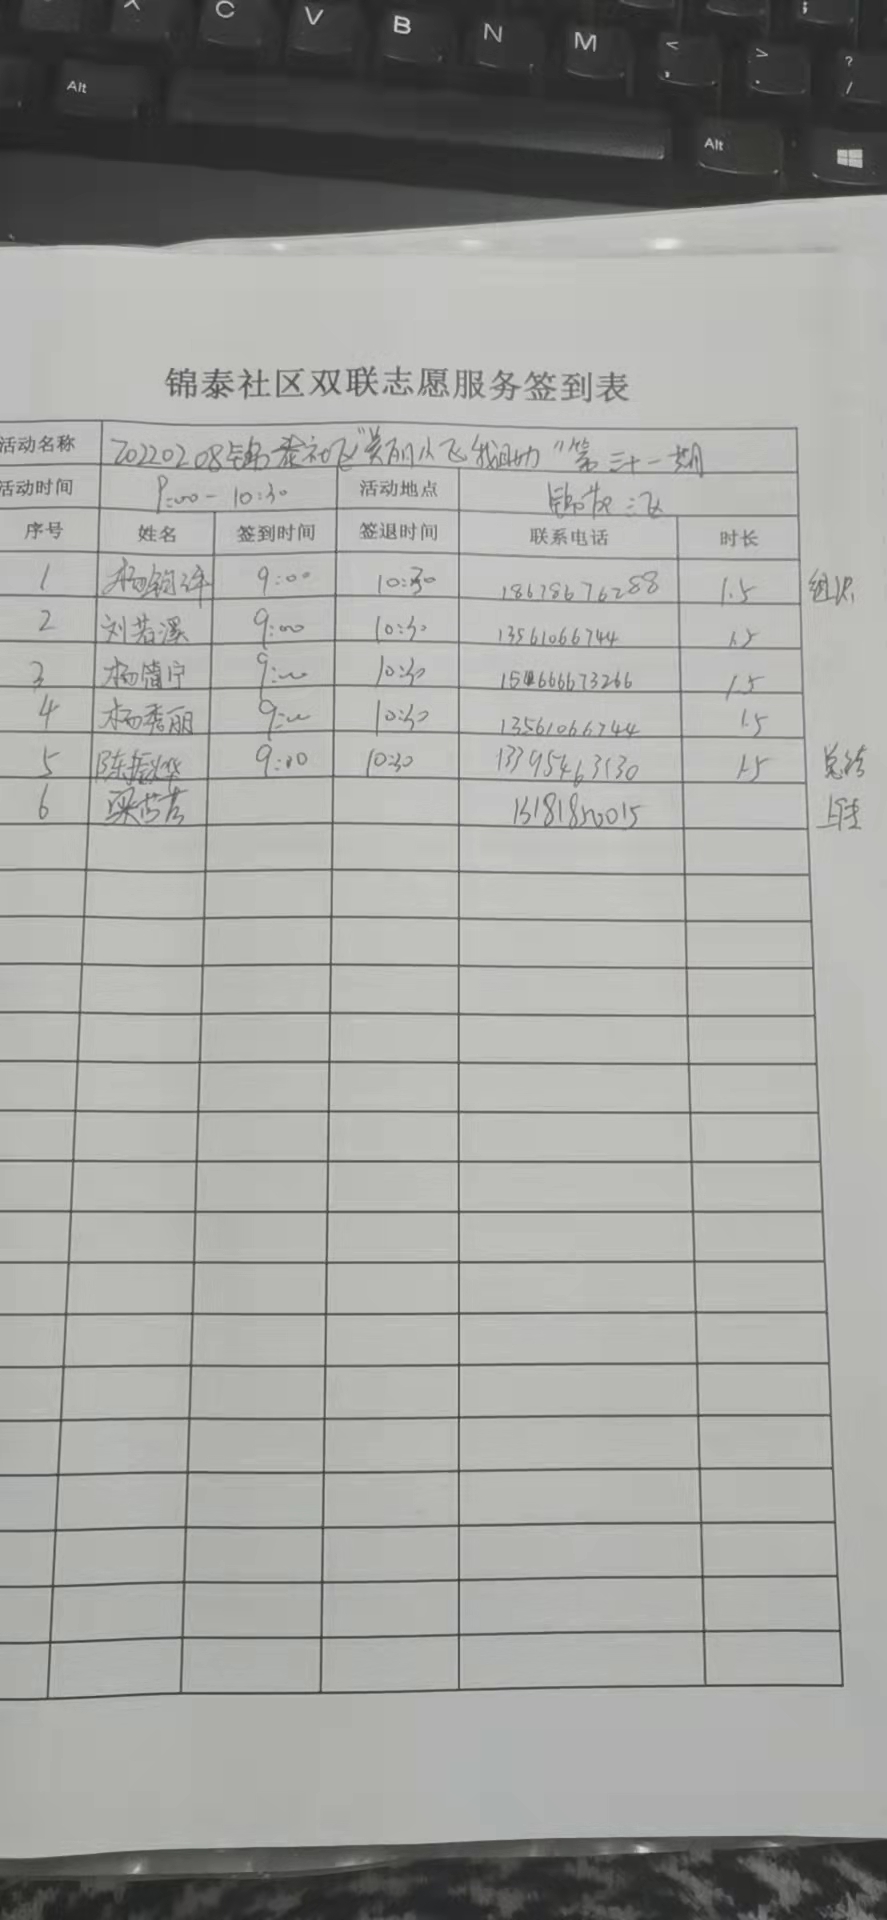 C V B N M < , > . ? /
Alt Alt
锦泰社区双联志愿服务签到表
活动名称 20220208锦泰社区"美丽小区我助力"第三十一期
活动时间 9:00-10:30 活动地点 锦苑三区
序号 姓名 签到时间 签退时间 联系电话 时长
1 杨 9:00 10:30 18678676288 1.5 组织
2 刘若溪 9:00 10:30 13561066744 1.5
3 杨 宁 9:00 10:30 15666673266 1.5
4 杨秀丽 9:00 10:30 13561066744 1.5
5 陈振华 9:00 10:30 13395463130 1.5 总结
6 梁芸芸 上传